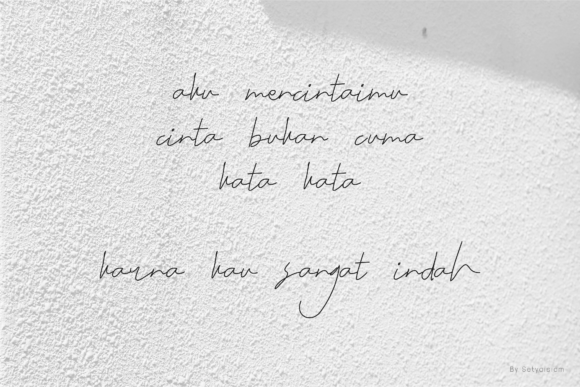 aku mencintaimu
cinta bukan cuma
kata kata
karna kau sangat indah